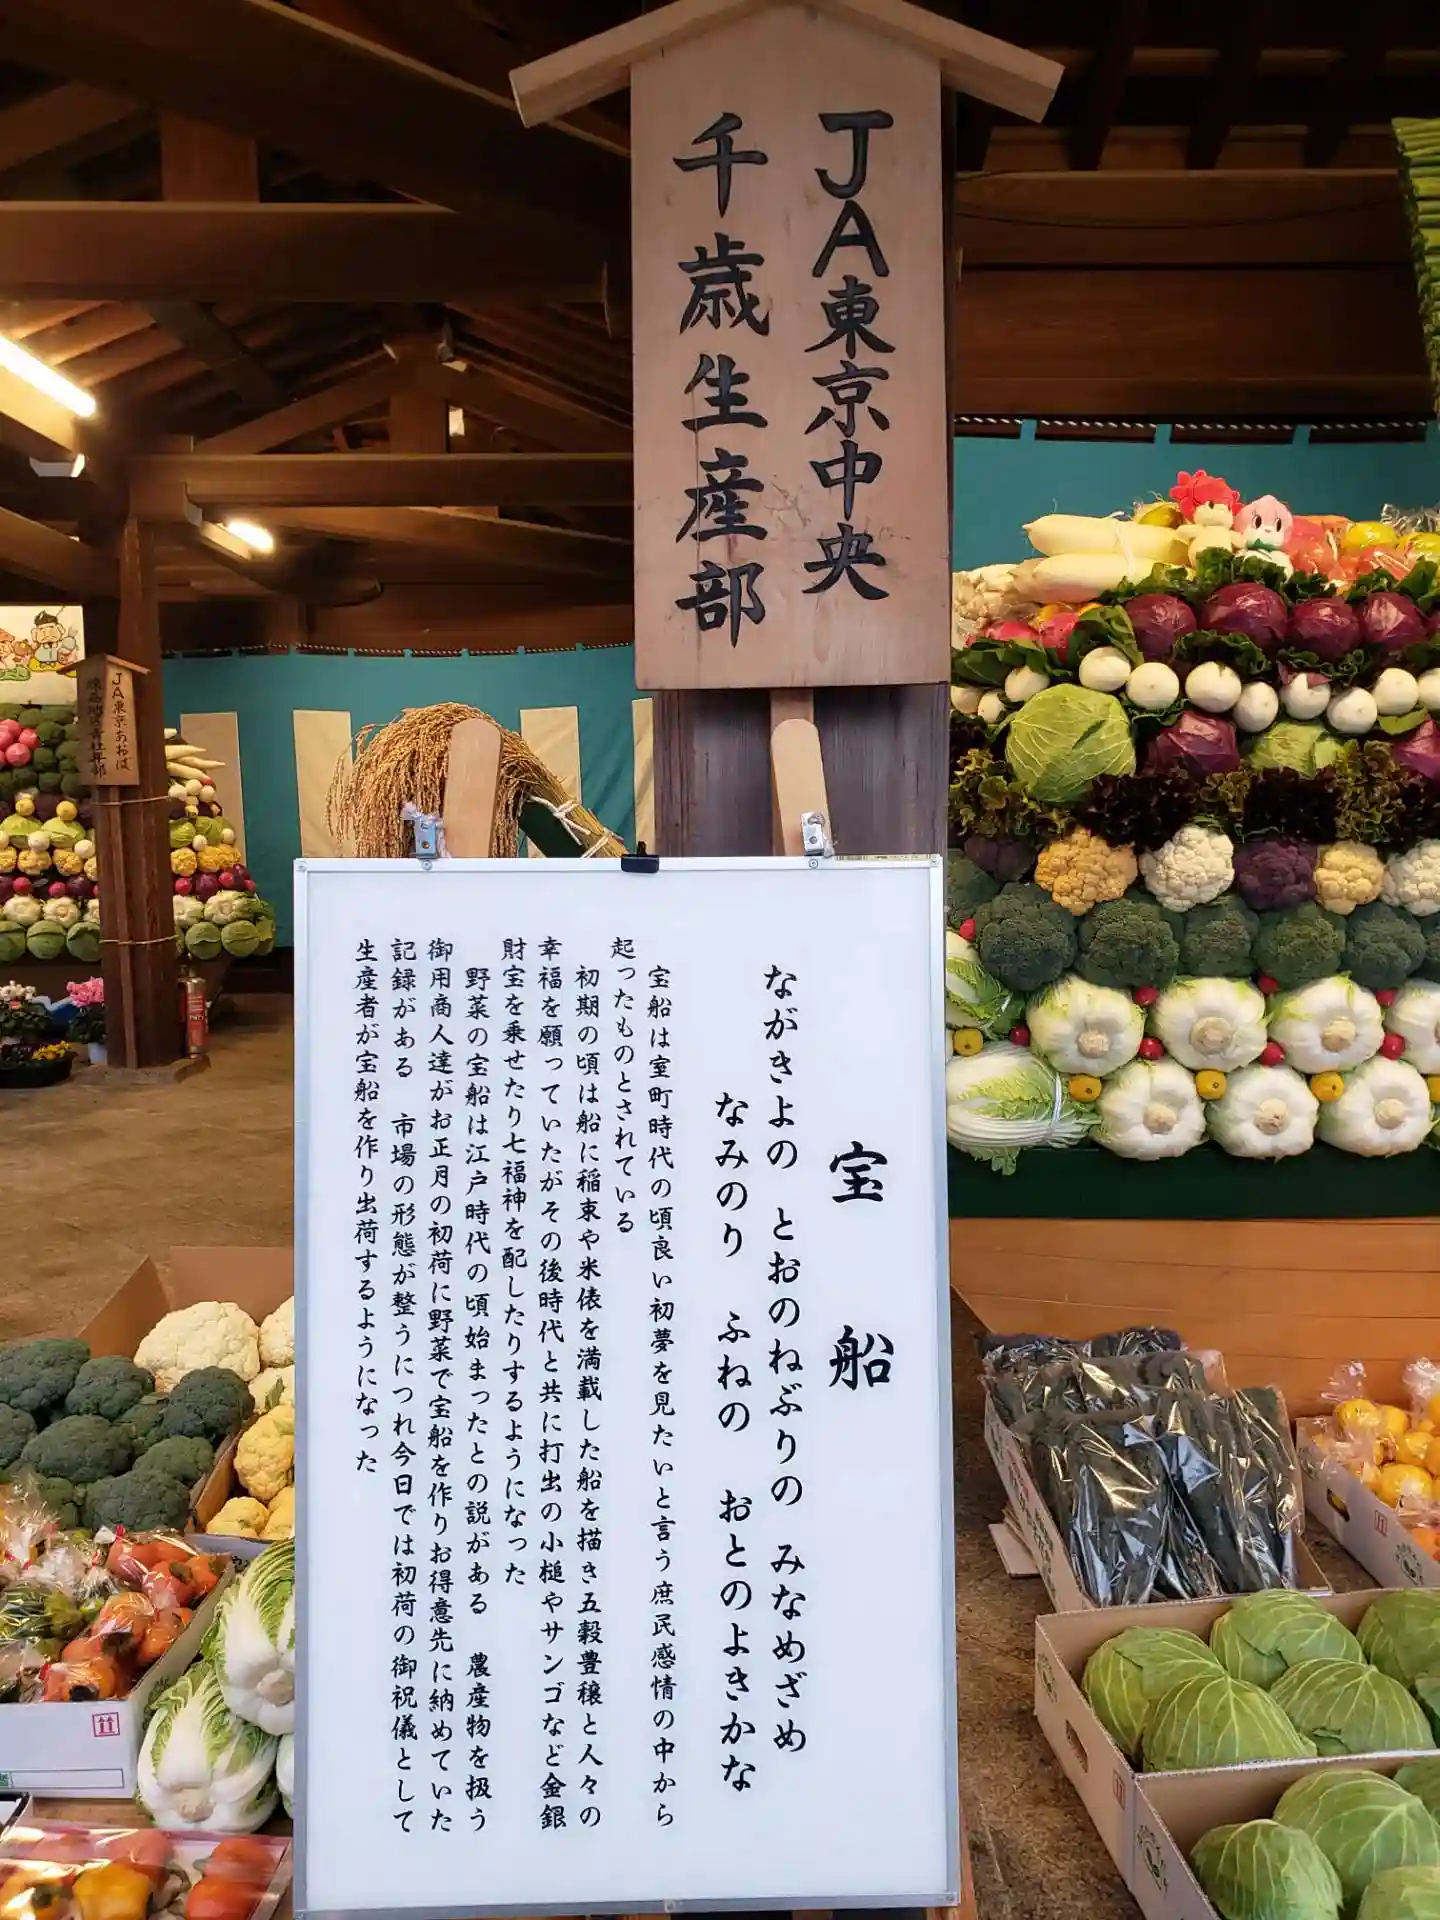 JA東京中央
千歳生産部
JA東京あおば
宝船
ながきよの とおのねぶりの みなめざめ
なみのり ふねの おとのよきかな
宝船は室町時代の頃良い初夢を見たいと言う庶民感情の中から
起ったものとされている
初期の頃は船に稲束や米俵を満載した船を描き五穀豊穣と人々の
幸福を願っていたがその後時代と共に打出の小槌やサンゴなど金銀
財宝を乗せたり七福神を配したりするようになった
野菜の宝船は江戸時代の頃始まったとの説がある 農産物を扱う
御用商人達がお正月の初荷に野菜で宝船を作りお得意先に納めていた
記録がある 市場の形態が整うにつれ今日では初荷の御祝儀として
生産者が宝船を作り出荷するようになった